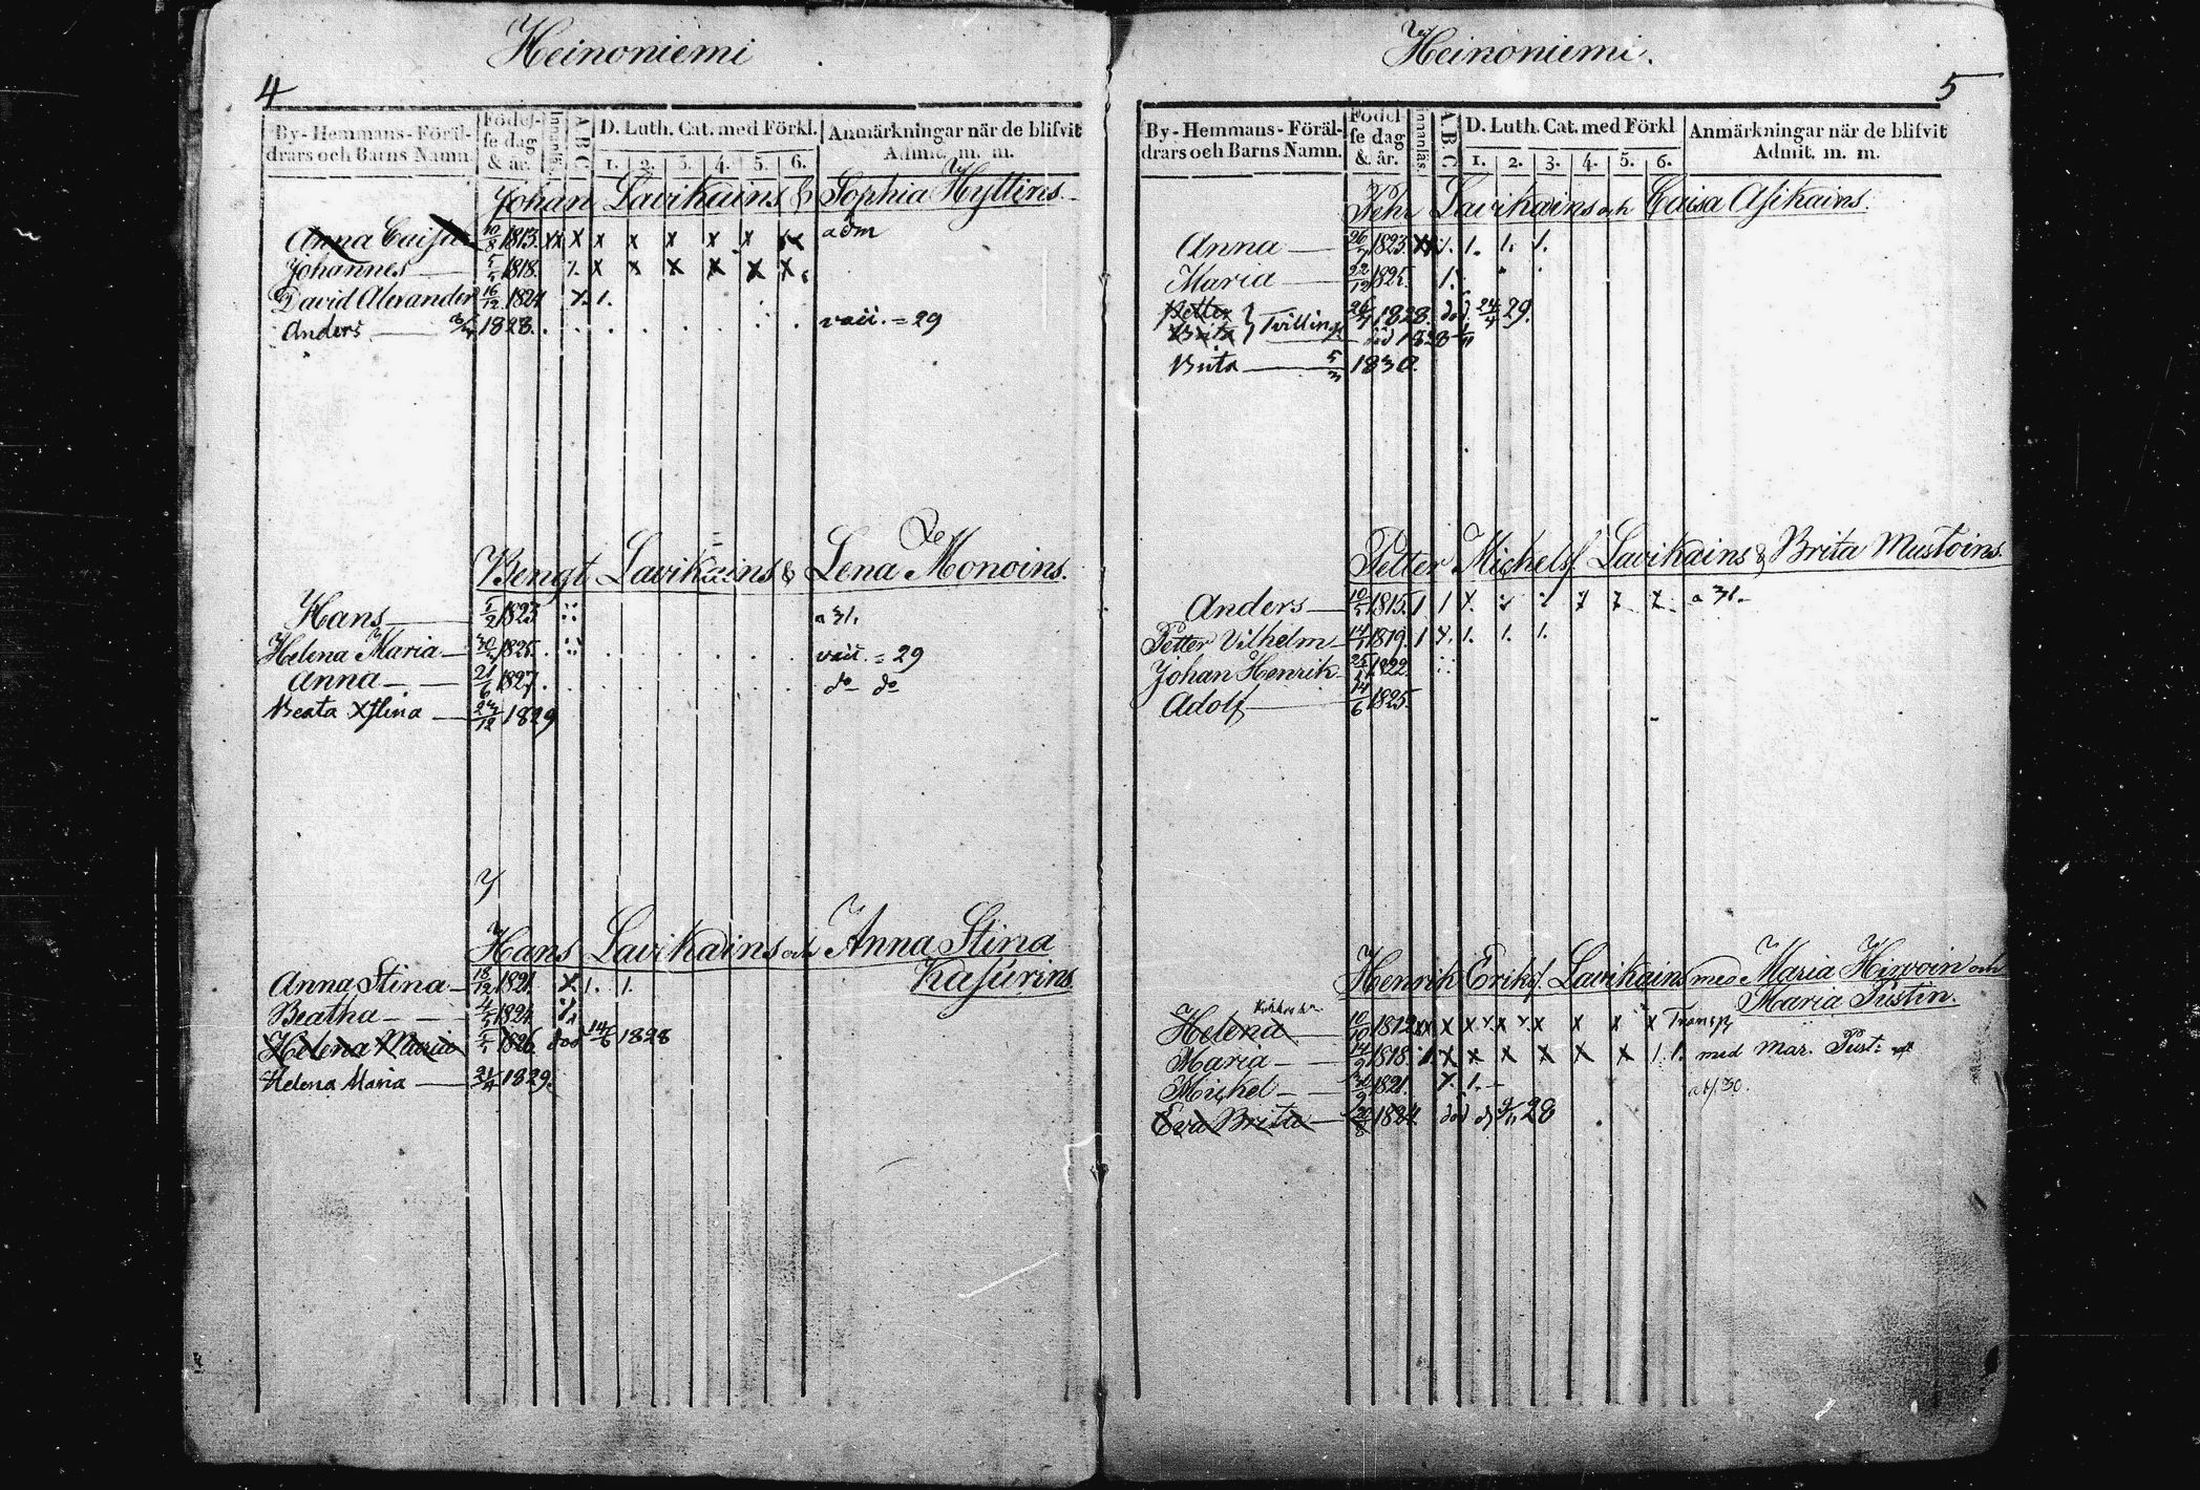 Heinoniemi
4
By-Hemmans-Föräl-
drars och Barns Namn.
Födel-
se dag
& år.
Innanläs.
A B C
D. Luth. Cat. med Förkl.
1. 2. 3. 4. 5. 6.
Anmärkningar när de blifvit
Admit. m. m.
Johan Lavikains & Sophia Hyttires.
Anna Caisa 10/8 1813. x x x x x x x x adm
Johannes 1818. x x x x x x
David Alexander 16/12 1824
Anders 1828. = 29
Bengt Lavikains & Lena Monoins.
Hans 5/2 1823 a 31.
Helena Maria 1825. = 29
Anna 21/6 1827. do do
Beata Xstina 1829
Hans Lavikains och Anna Stina
Kasurins
Anna Stina 18/12 1821. x 1. 1.
Beatha 1824
Helena Maria 1826. död 14/6 1828
Helena Maria 1829.
Heinoniemi.
5
By-Hemmans-Föräl-
drars och Barns Namn.
Födel-
se dag
& år.
innanläs.
A B C
D. Luth. Cat. med Förkl
1. 2. 3. 4. 5. 6.
Anmärkningar när de blifvit
Admit. m. m.
Pehr Lavikains och Caisa Asikains.
Anna 1823. 1. 1. 1.
Maria 22/12 1825. 1.
Petter } Tvillingar 1828. död 24/4 29.
Brita död 1828
Brita 5/3 1830.
Petter Michelss. Lavikains & Brita Mustoins.
Anders 1815. 1 1 a 31.
Petter Vilhelm 1819. 1 1. 1. 1.
Johan Henrik 1822.
Adolf 14/6 1825.
Henrik Eriks. Lavikains med Maria Hirvoin och
Maria Pustin.
Helena 10/10 1812 x x x x x x Transp
Maria 1818. x x x x x x 1. 1. med Mar. Pust:
Mickel 1821. 1. 30.
Eva Brita 1824 död 28